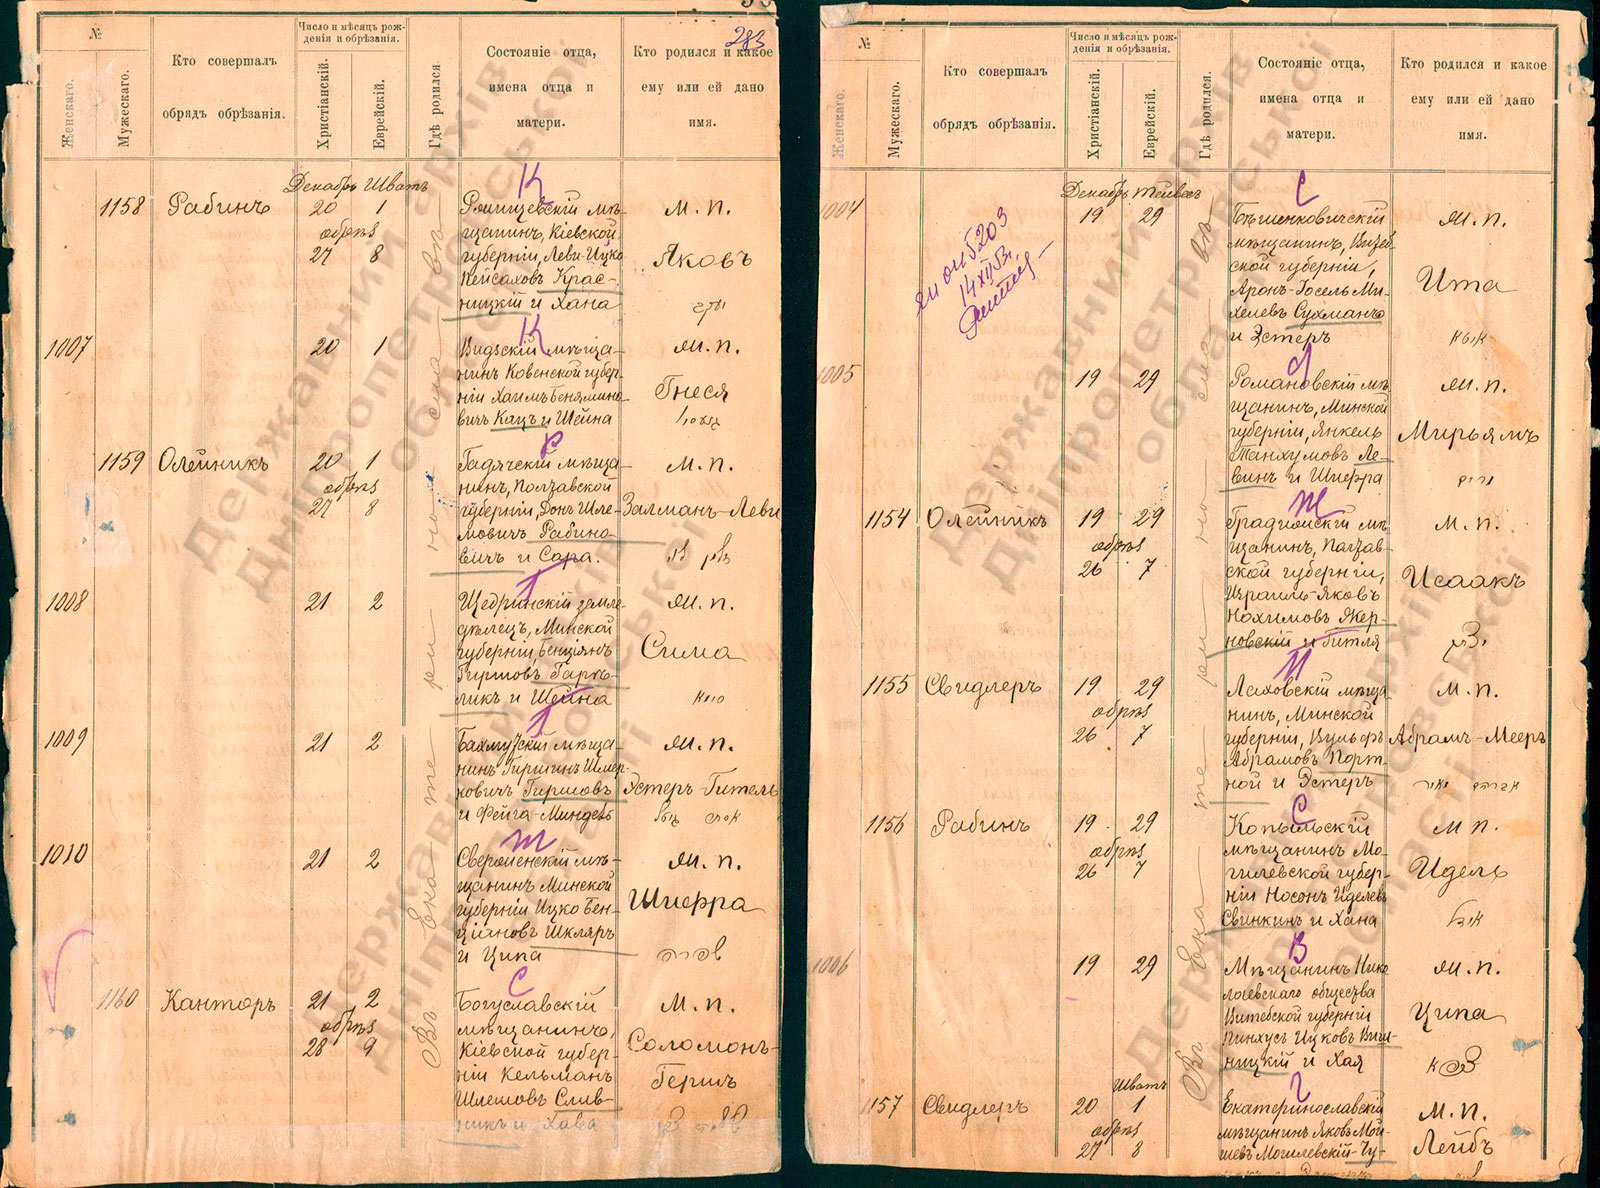 283
№
Женскаго.
Мужескаго.
Кто совершалъ
обрядъ обрѣзанія.
Число и мѣсяцъ рож-
денія и обрѣзанія.
Христіанскій.
Еврейскій.
Гдѣ родился.
Состояніе отца,
имена отца и
матери.
Кто родился и какое
ему или ей дано
имя.
Декабрь Шватъ
К
1158 Рабинъ 20 1 м. п.
обрѣз
27 8
щанинъ, Кіевской
губерніи, Леви-Ицко
Пейсаховъ Крас-
ницкій и Хана
Яковъ
К
1007 20 1 Видзскій мѣща-
нинъ Ковенской губер-
ніи Хаимъ Беньямино-
вичъ Кацъ и Шейна
м. п.
Гнеся
Р
1159 Олейникъ 20 1 Гадячскій мѣща-
обрѣз
27 8
нинъ, Полтавской
губерніи, Донъ Шле-
мовичъ Рабино-
вичъ и Сора.
м. п.
Залманъ-Леви
1008 21 2 Щедринскій земле-
дѣлецъ, Минской
губерніи, Бенціянъ
Гиршовъ Гарке-
ликъ и Шейна
м. п.
Сима
1009 21 2 Бахмутскій мѣща-
нинъ Гиршинъ Шмер-
ковичъ Гиршовъ
и Фейга-Миндель
м. п.
Эстеръ-Гитель
Ш
1010 21 2 Сверженскій мѣ-
щанинъ Минской
губерніи Ицко Бен-
ціановъ Шкляръ
и Ципа
м. п.
Шифра
С
1160 Канторъ 21 2 Богуславскій
обрѣз
28 9
мѣщанинъ,
Кіевской губер-
ніи Кельманъ
Шлемовъ Слив-
никъ и Хава
м. п.
Соломонъ-
Гершъ
Въ Екатеринославѣ
№
Женскаго.
Мужескаго.
Кто совершалъ
обрядъ обрѣзанія.
Число и мѣсяцъ рож-
денія и обрѣзанія.
Христіанскій.
Еврейскій.
Гдѣ родился.
Состояніе отца,
имена отца и
матери.
Кто родился и какое
ему или ей дано
имя.
Декабрь Тейвесъ
С
1004 19 29 Бѣшенковичскій
мѣщанинъ, Витеб-
ской губерніи,
Аронъ-Іосель Ми-
хелевъ Сухманъ
и Эстеръ
м. п.
Ита
1005 19 29 Романовскій мѣ-
щанинъ, Минской
губерніи, Янкель
Танхумовъ Ле-
винъ и Шифра
м. п.
Мирьямъ
1154 Олейникъ 19 29 Градижскій мѣ-
обрѣз
26 7
щанинъ, Полтав-
ской губерніи,
Израиль-Яковъ
Нохимовъ Жер-
новскій и Гитля
м. п.
Исаакъ
1155 Свидлеръ 19 29 Ляховскій мѣща-
обрѣз
26 7
нинъ, Минской
губерніи, Вульфъ
Абрамовъ Порт-
ной и Эстеръ
м. п.
Абрамъ-Мееръ
С
1156 Рабинъ 19 29 Копыльскій
обрѣз
26 7
мѣщанинъ Мо-
гилевской губер-
ніи Носонъ Иделевъ
Свинкинъ и Хана
м. п.
Идель
В
1006 19 29 Мѣщанинъ Нико-
лаевскаго общества
Витебской губерніи
Пинхусъ Ицковъ Виш-
ницкій и Хая
м. п.
Ципа
Шватъ
1157 Свидлеръ 20 1 Екатеринославскій
обрѣз
27 8
мѣщанинъ Яковъ Мой-
шевъ Могилевскій-Чу-
м. п.
Лейбъ
Въ Екатеринославѣ
Державний архів
Дніпропетровської
області